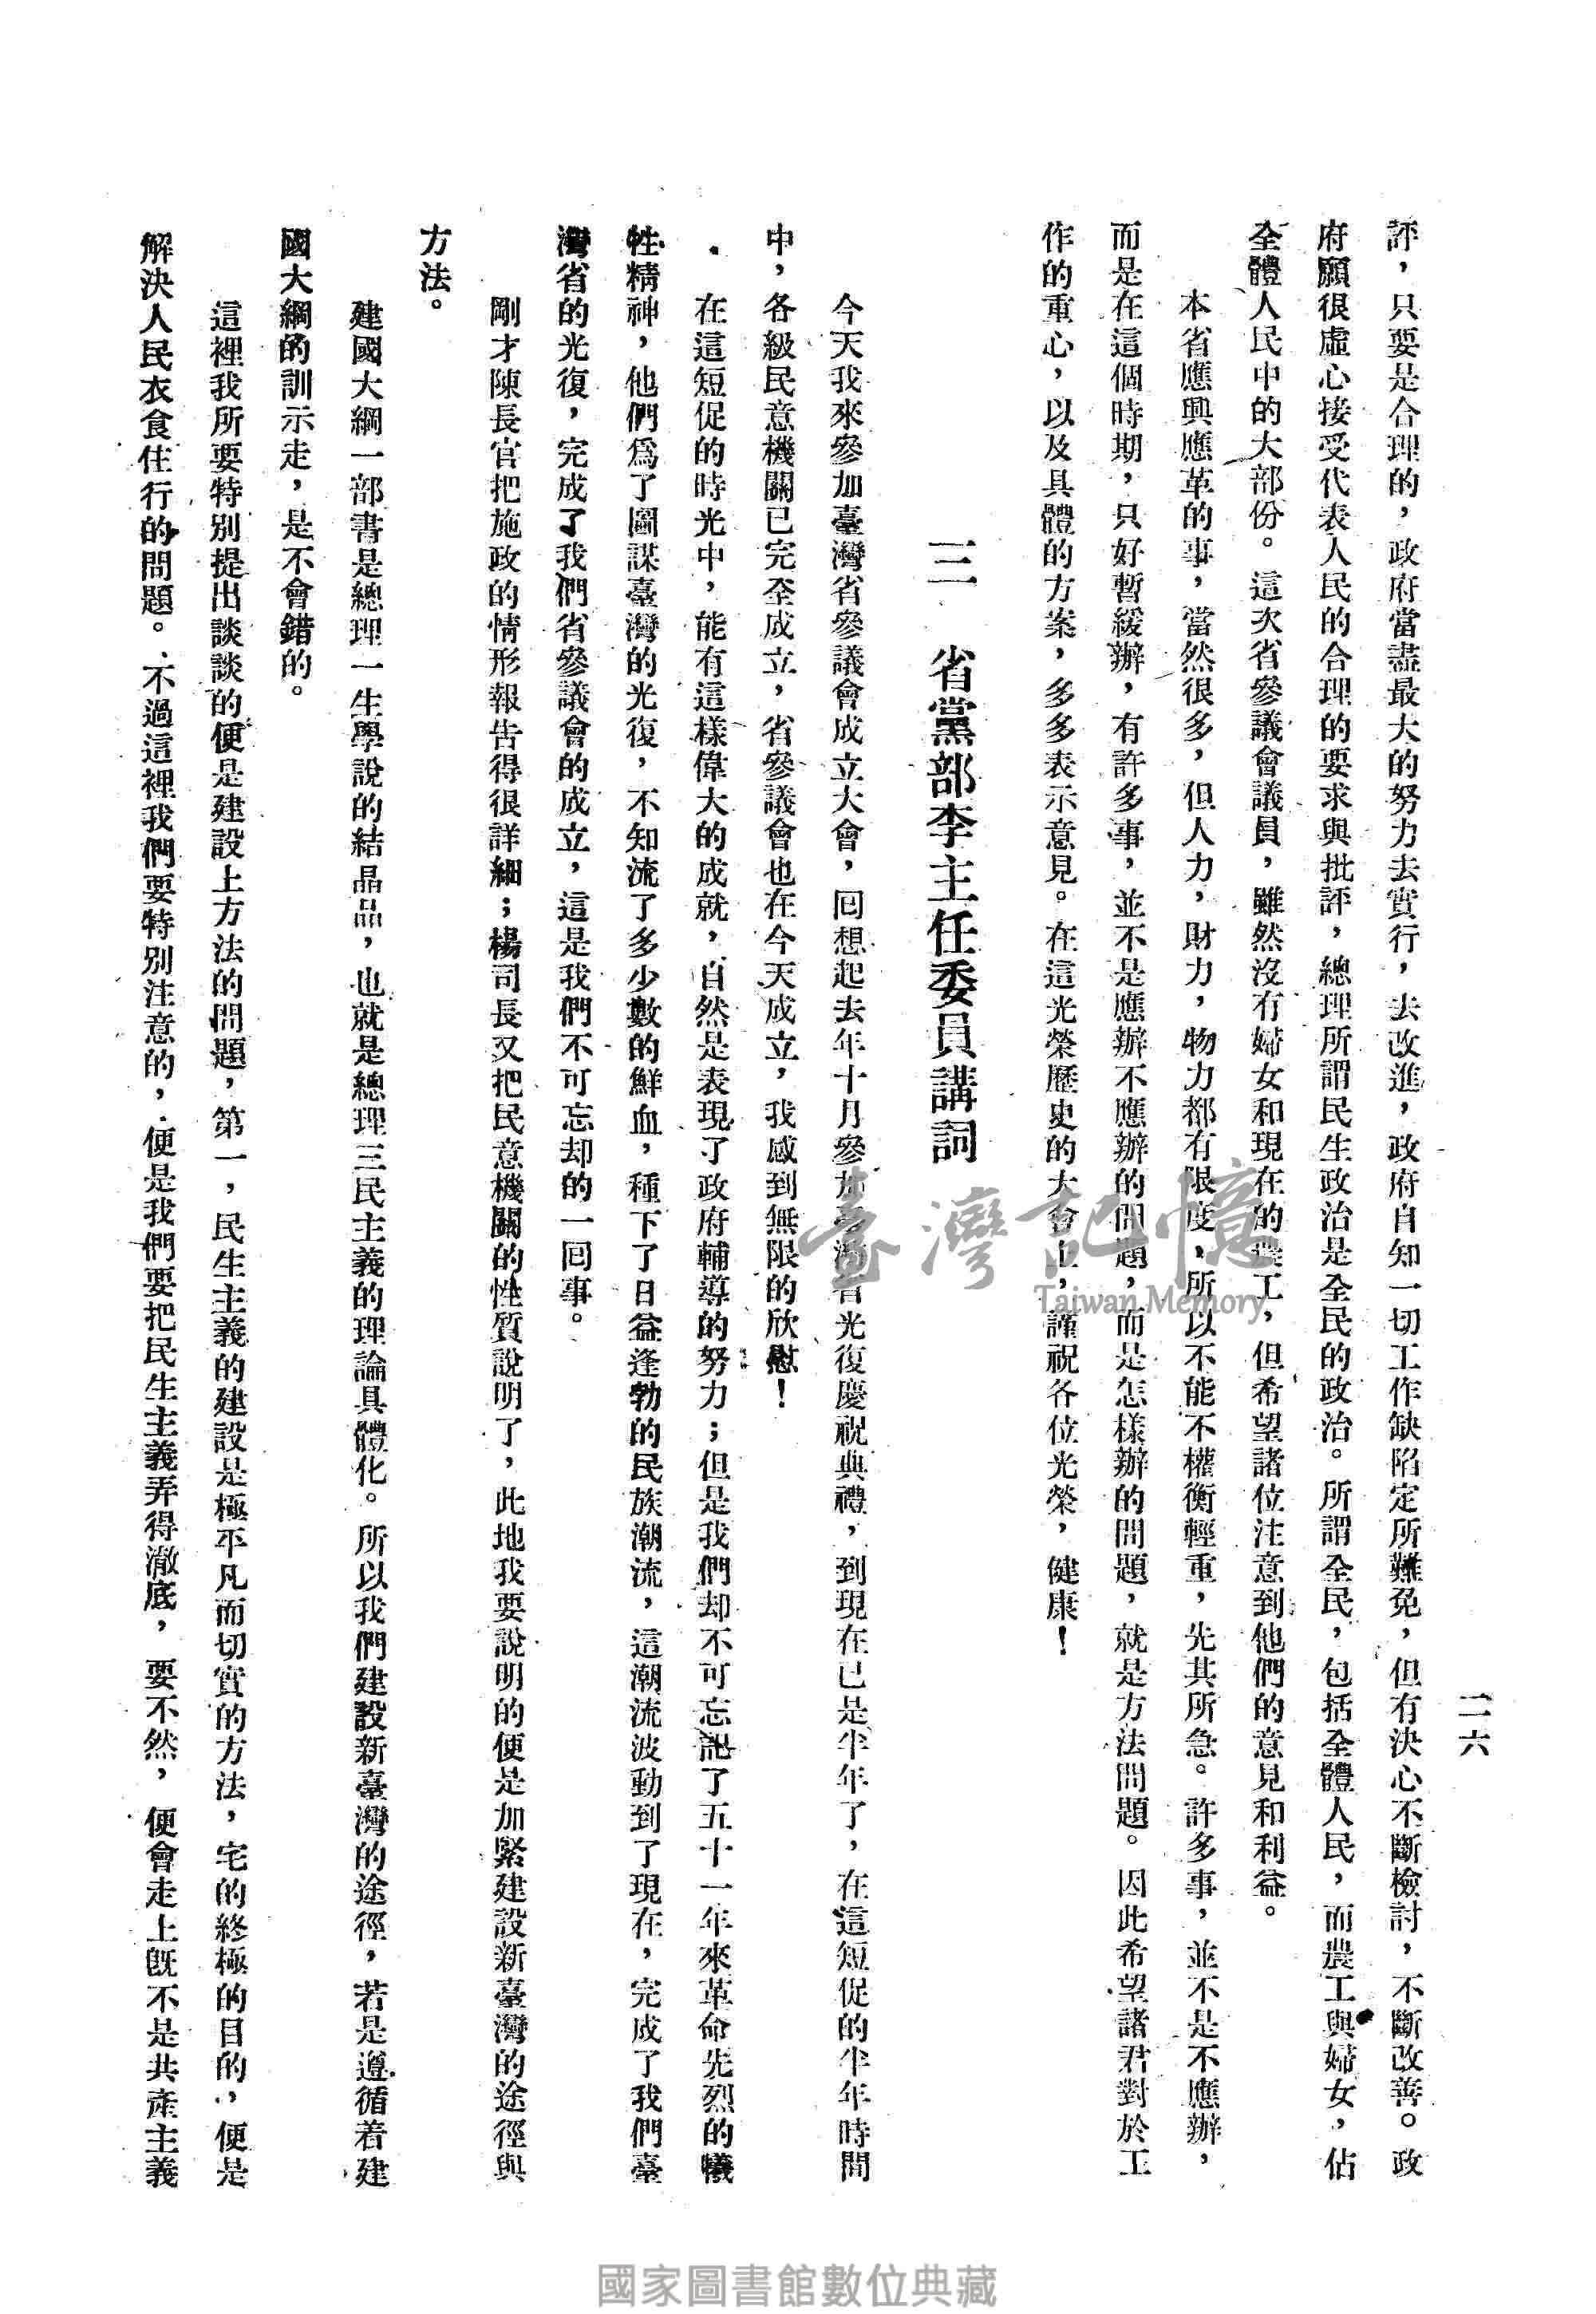 二六
評，只要是合理的，政府當盡最大的努力去實行，去改進，政府自知一切工作缺陷定所難免，但有決心不斷檢討，不斷改善。政
府願很虛心接受代表人民的合理的要求與批評，總理所謂民生政治是全民的政治。所謂全民，包括全體人民，而農工與婦女，佔
全體人民中的大部份。這次省參議會議員，雖然沒有婦女和現在的農工，但希望諸位注意到他們的意見和利益。
本省應興應革的事，當然很多，但人力，財力，物力都有限度，所以不能不權衡輕重，先其所急。許多事，並不是不應辦，
而是在這個時期，只好暫緩辦，有許多事，並不是應辦不應辦的問題，而是怎樣辦的問題，就是方法問題。因此希望諸君對於工
作的重心，以及具體的方案，多多表示意見。在這光榮歷史的大會上，謹祝各位光榮，健康！
三　省黨部李主任委員講詞
今天我來參加臺灣省參議會成立大會，回想起去年十月參加臺灣省光復慶祝典禮，到現在已是半年了，在這短促的半年時間
中，各級民意機關已完全成立，省參議會也在今天成立，我感到無限的欣慰！
在這短促的時光中，能有這樣偉大的成就，自然是表現了政府輔導的努力；但是我們却不可忘記了五十一年來革命先烈的犧
牲精神，他們爲了圖謀臺灣的光復，不知流了多少數的鮮血，種下了日益蓬勃的民族潮流，這潮流波動到了現在，完成了我們臺
灣省的光復，完成了我們省參議會的成立，這是我們不可忘却的一回事。
剛才陳長官把施政的情形報告得很詳細；楊司長又把民意機關的性質說明了，此地我要說明的便是加緊建設新臺灣的途徑與
方法。
建國大綱一部書是總理一生學說的結晶品，也就是總理三民主義的理論具體化。所以我們建設新臺灣的途徑，若是遵循着建
國大綱的訓示走，是不會錯的。
這裡我所要特別提出談談的便是建設上方法的問題，第一，民生主義的建設是極平凡而切實的方法，宅的終極的目的，便是
解決人民衣食住行的問題。不過這裡我們要特別注意的，便是我們要把民生主義弄得澈底，要不然，便會走上既不是共產主義
臺灣記憶
Taiwan Memory
國家圖書館數位典藏